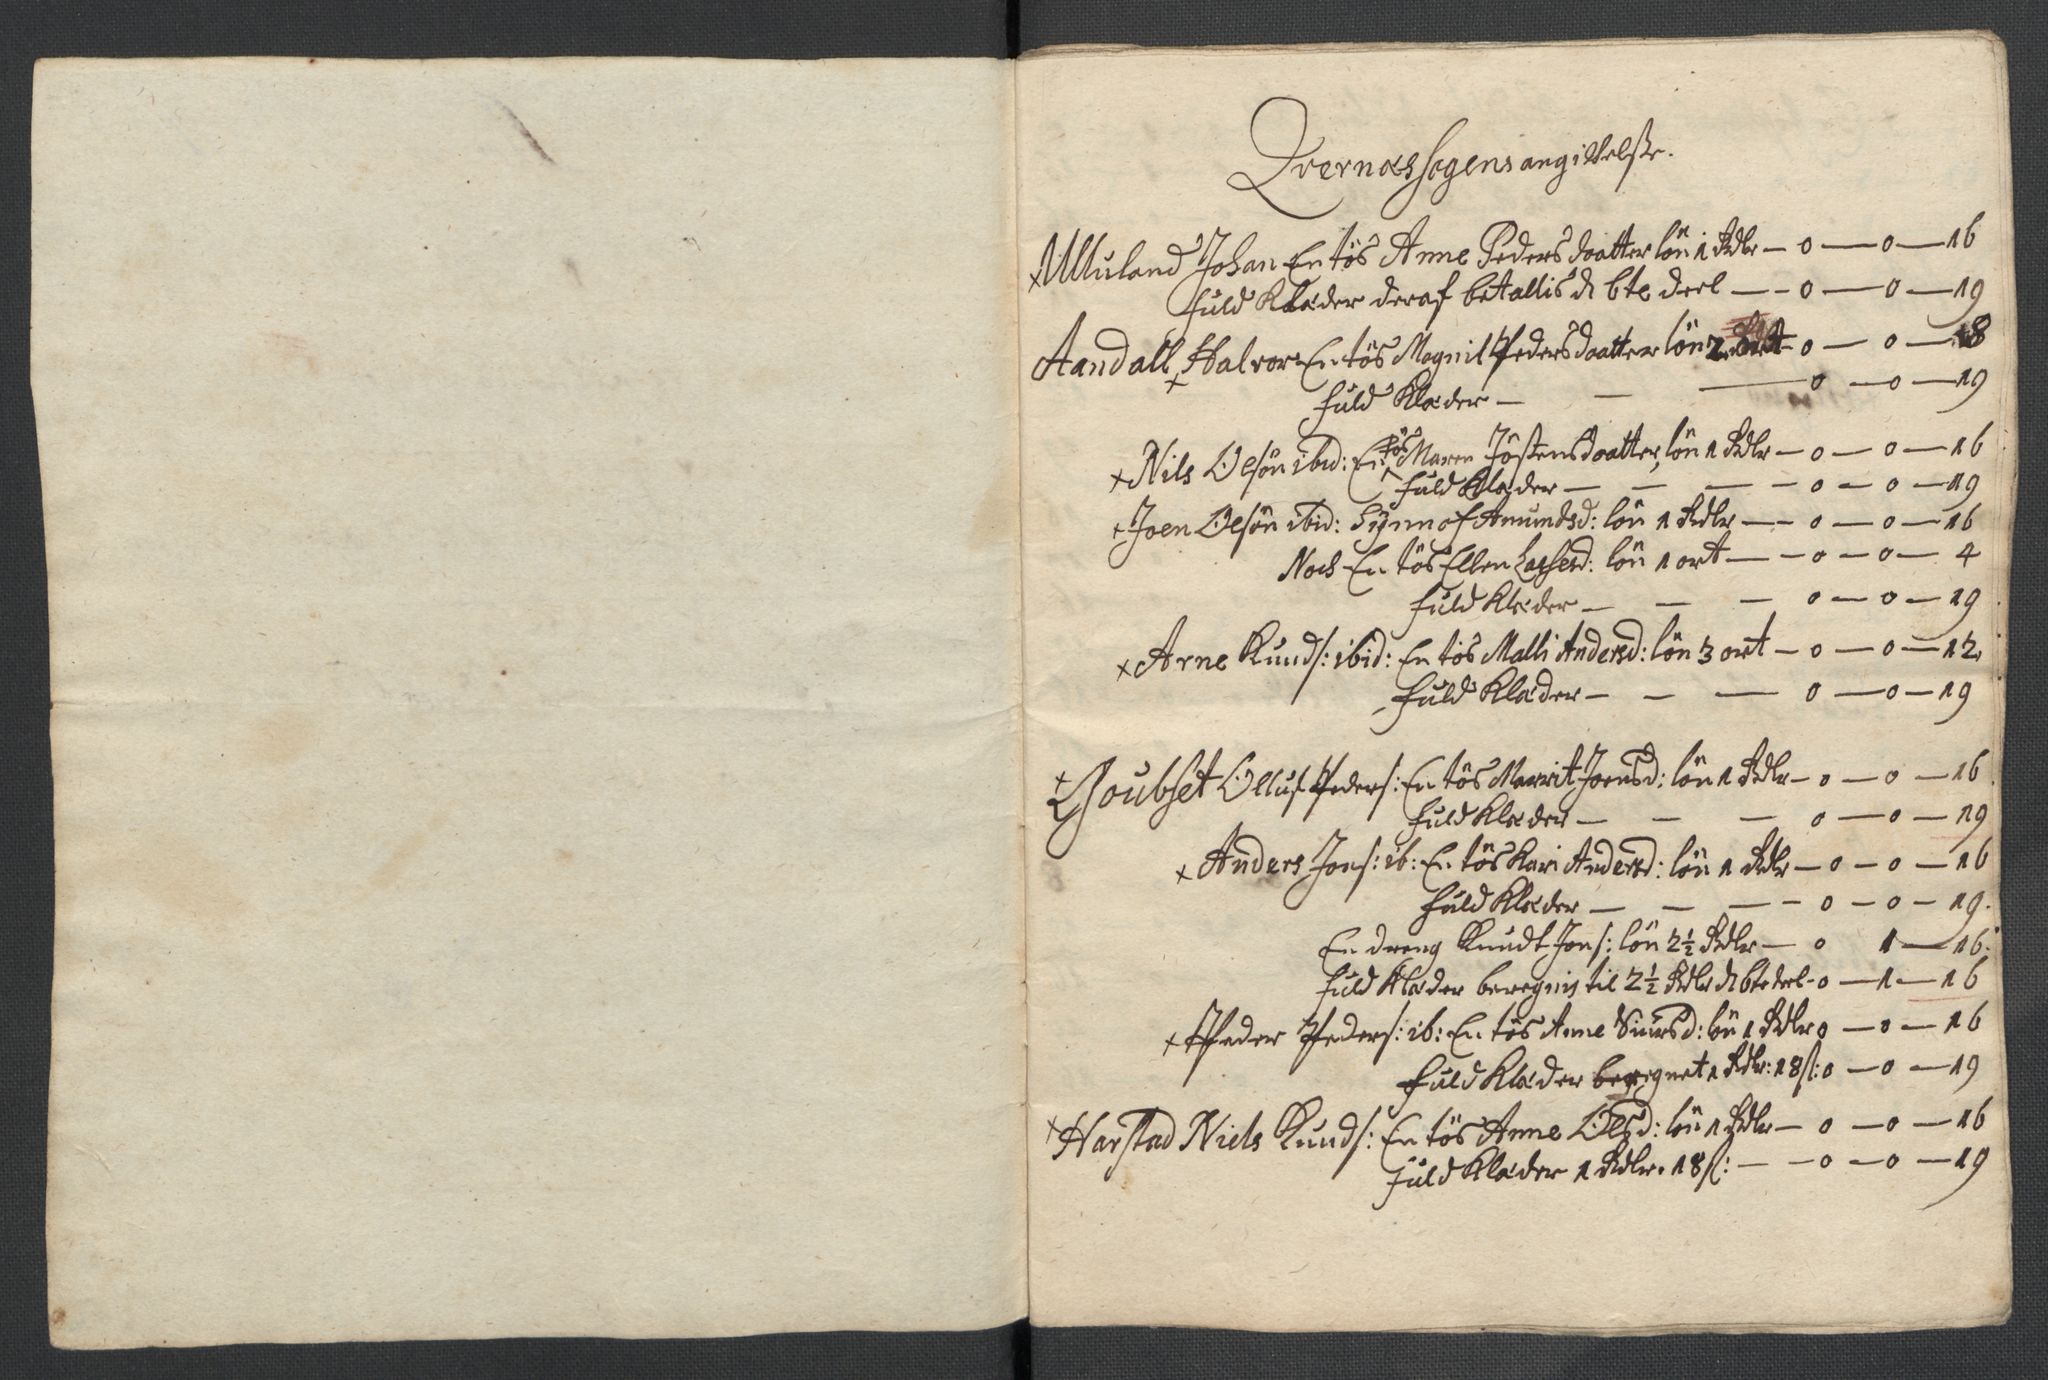 Qvernæs sogens angifvelsse.
× Ulluland Johan En tös Anne Peders daatter lön 1 Rdlr — 0 — 0 — 16
fuld Klæder deraf betallis d 6te deel — 0 — 0 — 19
Aandall × Halvor En tös Magnil Pedersdaatter lön 2 ort 0 — 0 — 8
fuld Klæder — 0 — 0 — 19
× Nils Olsön ibid: En tös Maren Jöstensdaatter, lön 1 Rdlr — 0 — 0 — 16
fuld Klæder — 0 — 0 — 19
× Joen Olsön ibid: Synnof Amundsd: lön 1 Rdlr — 0 — 0 — 16
Noch En tös Ellen d: lön 1 ort — 0 — 0 — 4
fuld Klæder — 0 — 0 — 19
× Arne Knuds: ibid: En tös Malli Andersd: lön 3 ort — 0 — 0 — 12
fuld Klæder — 0 — 0 — 19
× Goubset Olluf Peders: En tös Marrit Joensd: lön 1 Rdlr — 0 — 0 — 16
fuld Klæder — 0 — 0 — 19
× Anders Jons: ib: En tös Kari Andersd: lön 1 Rdlr — 0 — 0 — 16
fuld Klæder — 0 — 0 — 19.
En dreng Knudt Jons: lön 2½ Rdlr — 0 1 — 16.
fuld Klæder beregnis til 2½ Rdlr d 6te deel - 0 — 1 — 16
× Peder Peders: ib: En tös Anne Siursd: lön 1 Rdlr 0 — 0 — 16
fuld Klæder beregnet 1 Rdlr: 18 s: 0 — 0 — 19
× Harstad Niels Knuds: En tös Anne Olsd: lön 1 Rdlr — 0 — 0 — 16
fuld Klæder 1 Rdlr. 18 s: — 0 — 0 — 19